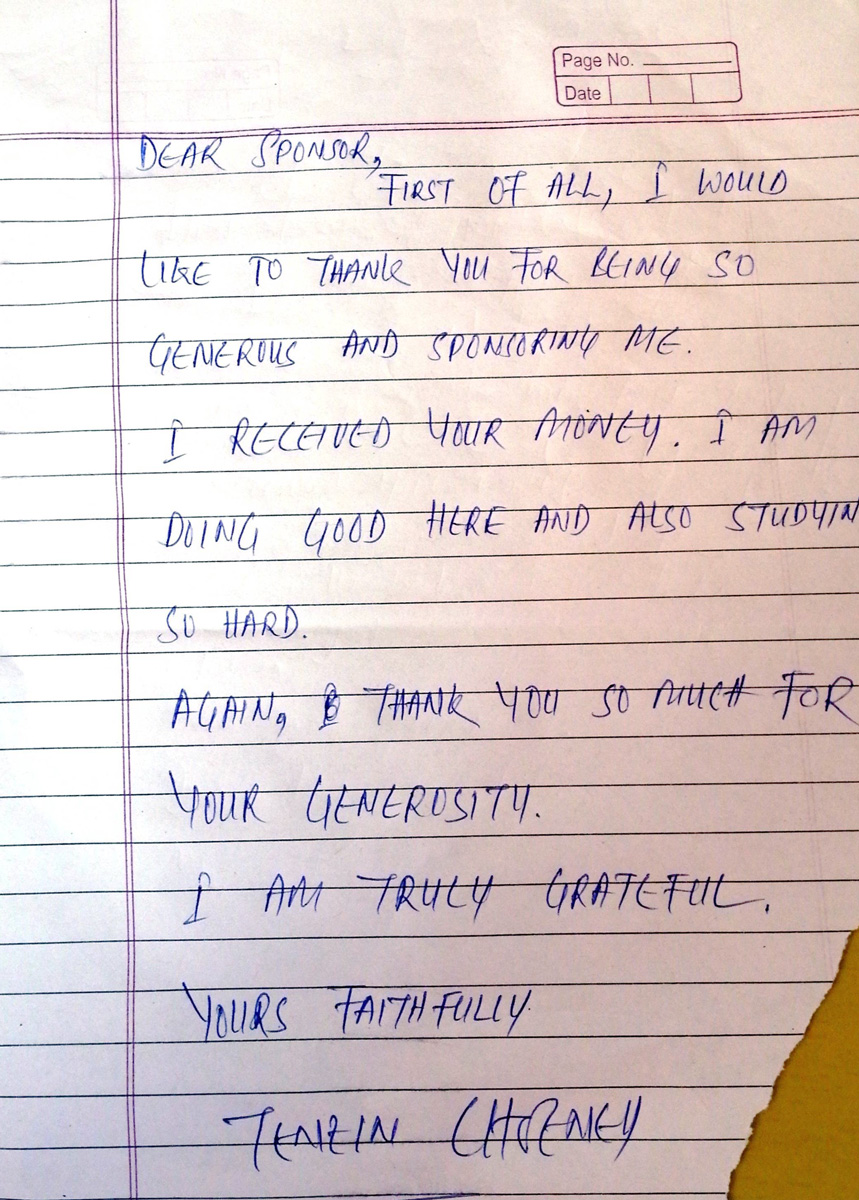 Page No.
Date
DEAR SPONSOR,
FIRST OF ALL, I WOULD
LIKE TO THANK YOU FOR BEING SO
GENEROUS AND SPONSORING ME.
I RECEIVED YOUR MONEY. I AM
DOING GOOD HERE AND ALSO STUDYIN
SO HARD.
AGAIN, THANK YOU SO MUCH FOR
YOUR GENEROSITY.
I AM TRULY GRATEFUL.
YOURS FAITHFULLY
TENZIN